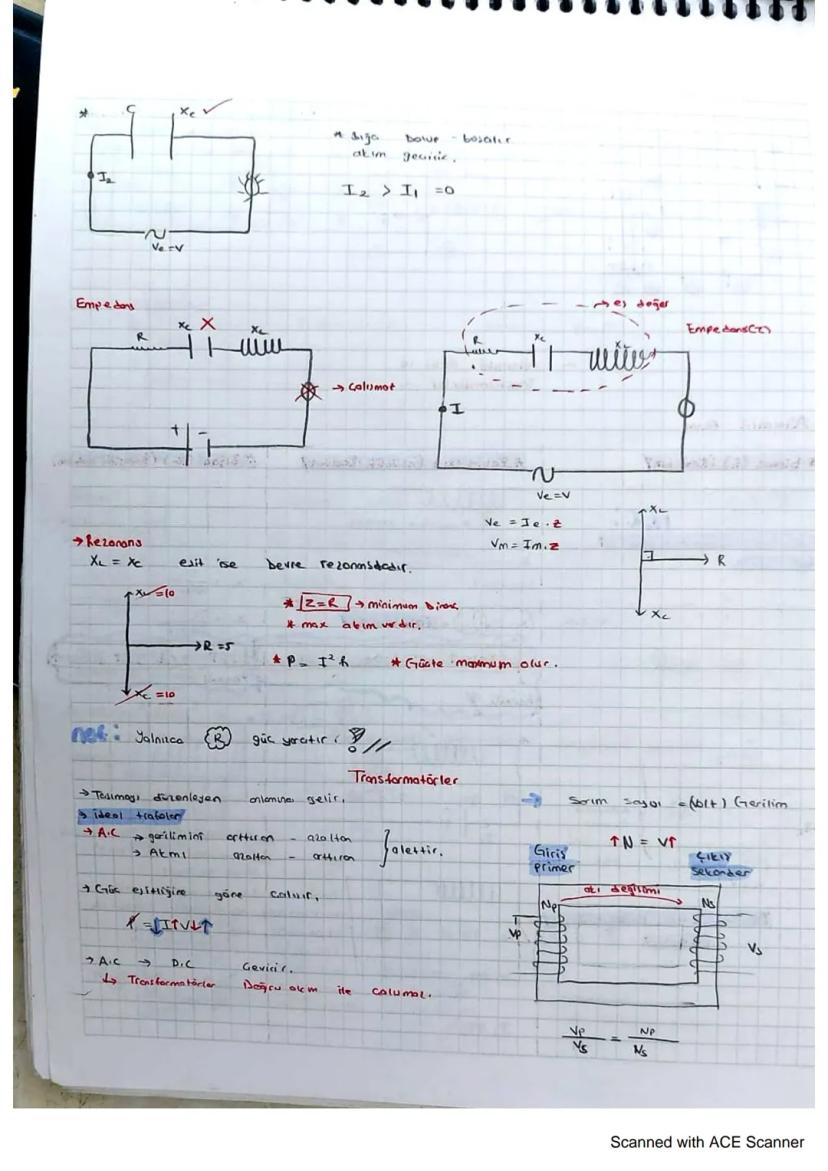 * C Xc ✓
* Sığa dolup - boşalır
akım geçirir.
I2
I2 > I1 = 0
Ve = V
Empedans
→ eş değer
R Xc X XL
R Xc XL
Empedans(Z)
→ Çalışmaz
I
+ -
Ve = V
Ve = Ie . Z
Vm = Im . Z
XL
R
Xc
→ Rezonans
XL = Xc eşit ise devre rezonanstadır.
XL = 10
R = 5
Xc = 10
* Z = R → minimum direnç
* max akım verdir.
* P = I² R * Güçte maximum olur.
not: Yalnızca R güç yaratır !
Transformatörler
→ Taşımayı düzenleyen anlamına gelir.
→ ideal trafolar
→ A.C → gerilimini arttıran - azaltan
→ Akımı azaltan - arttıran } alettir.
→ Güç eşitliğine göre çalışır.
P = ↓I↑V↓↑
→ A.C → D.C Çevirir.
↳ Transformatörler Doğru akım ile çalışmaz.
→ Sarım sayısı = (Volt) Gerilim
↑N = V↑
Giriş
primer
Çıkış
sekonder
akı değişimi
Np Ns
Vp Vs
Vp / Vs = Np / Ns
Scanned with ACE Scanner